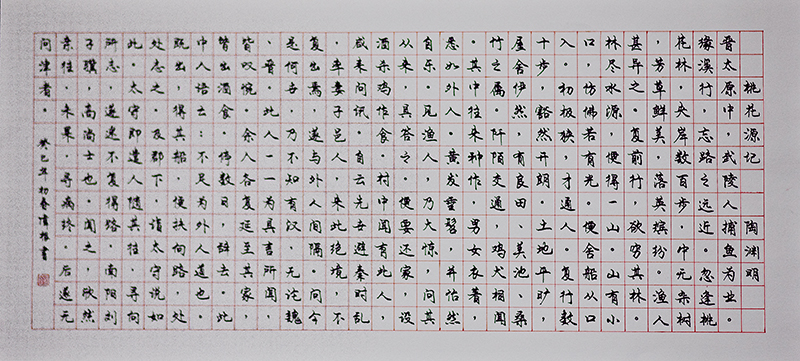 桃花源记 陶渊明
晋太原中，武陵人捕鱼为业。
缘溪行，忘路之远近。忽逢桃
花林，夹岸数百步，中无杂树
，芳草鲜美，落英缤纷。渔人
甚异之。复前行，欲穷其林。
林尽水源，便得一山。山有小
口，仿佛若有光。便舍船从口
入。初极狭，才通人。复行数
十步，豁然开朗。土地平旷，
屋舍俨然，有良田、美池、桑
竹之属。阡陌交通，鸡犬相闻
。其中往来种作，男女衣着，
悉如外人。黄发垂髫，并怡然
自乐。见渔人，乃大惊，问其
从来。具答之。便要还家，设
酒杀鸡作食。村中闻有此人，
咸来问讯。自云先世避秦时乱
，率妻子邑人，来此绝境，不
复出焉，遂与外人间隔。问今
是何世，乃不知有汉，无论魏
晋。此人一一为具言所闻，
皆叹惋。余人各复延至其家，
皆出酒食。停数日，辞去。此
中人语云：不足为外人道也。
既出，得其船，便扶向路，处
处志之。及郡下，诣太守，说如
此。太守即遣人随其往，寻向
所志，遂迷不复得路。南阳刘
子骥，高尚士也，闻之，欣然
亲往。未果，寻病终。后遂无
问津者。 癸巳年初春 书